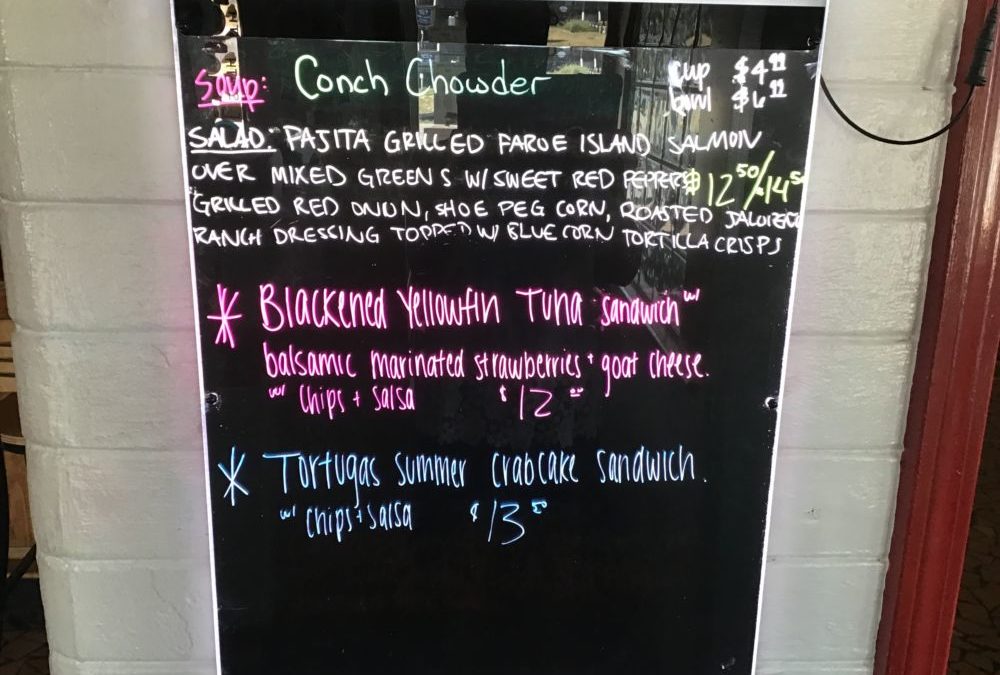 Soup: Conch Chowder cup $4.99
bowl $6.99
SALAD: FAJITA GRILLED FAROE ISLAND SALMON
OVER MIXED GREENS W/ SWEET RED PEPPERS $12.50/14.50
GRILLED RED ONION, SHOE PEG CORN, ROASTED
RANCH DRESSING TOPPED W/ BLUE CORN TORTILLA CRISPS
* Blackened Yellowfin Tuna sandwich w/
balsamic marinated strawberries + goat cheese.
w/ chips + salsa $12.00
* Tortugas Summer crabcake sandwich.
w/ chips + salsa $13.50